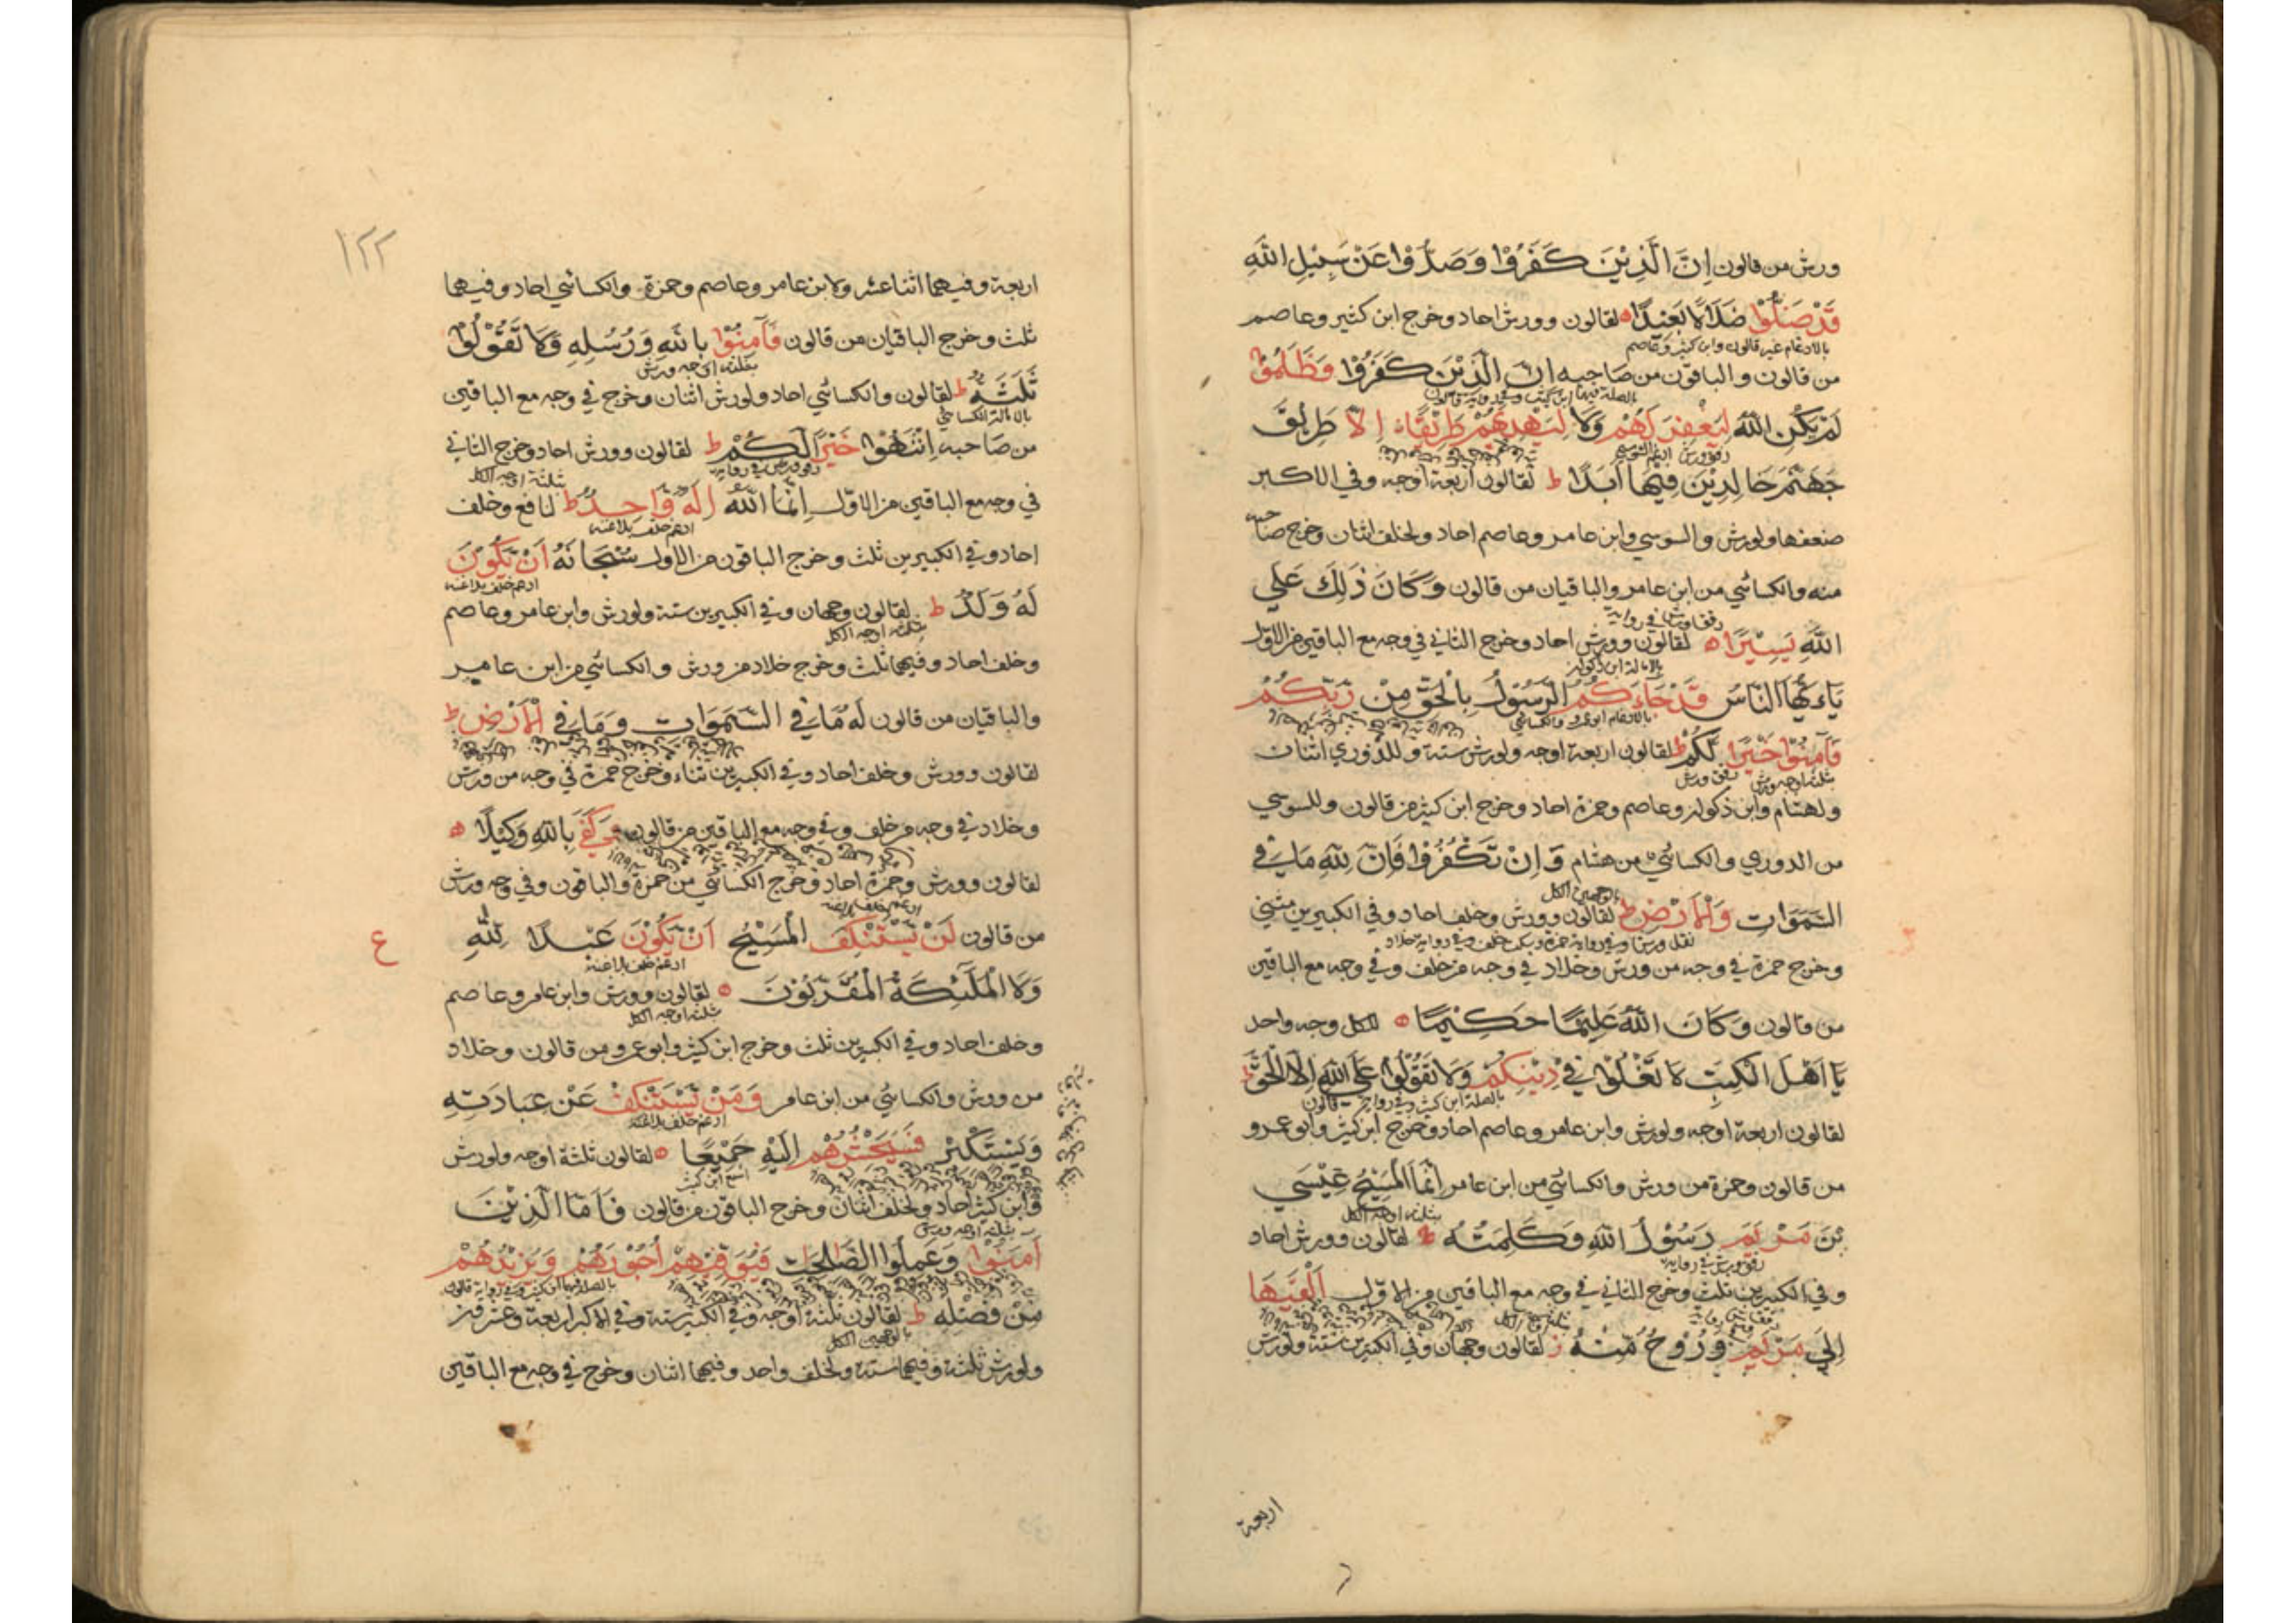 ورش من قالون اِنَّ الَّذِيْنَ كَفَرُوْا وَصَدُّوْا عَنْ سَبِيْلِ اللهِ
قَدْ ضَلُّوْا ضَلَالًا بَعِيْدًا لقالون وورش احاد وخرج ابن كثير وعاصم
بالادغام غير قالون وابن كثير وعاصم
من قالون والباقون من صاحبه اِنَّ الَّذِيْنَ كَفَرُوْا وَظَلَمُوْا
لَمْ يَكُنِ اللهُ لِيَغْفِرَ لَهُمْ وَلَا لِيَهْدِيَهُمْ طَرِيْقًا اِلَّا طَرِيْقَ
جَهَنَّمَ خَالِدِيْنَ فِيْهَا اَبَدًا ط لقالون اربعة اوجه وفي الاكبر
ضعفها ولورش والسوسي وابن عامر وعاصم احاد ولخلف اثنان وخرج صاحبه
منه والكسائي من ابن عامر والباقيان من قالون وَكَانَ ذٰلِكَ عَلَي
اللهِ يَسِيْرًا لقالون وورش احاد وخرج الثاني في وجه مع الباقين من الاول
يَاءَيُّهَا النَّاسُ قَدْ جَاءَكُمُ الرَّسُوْلُ بِالْحَقِّ مِنْ رَبِّكُمْ
بالادغام ابو عمرو والكسائي
فَآمِنُوْا خَيْرًا لَكُمْ ط لقالون اربعة اوجه ولورش ستة وللدوري اثنان
ثلثة اوجه ورش رقق ورش
ولهشام وابن ذكوان وعاصم وحمزة احاد وخرج ابن كثير من قالون وللسوسي
من الدوري والكسائي من هشام وَاِنْ تَكْفُرُوْا فَاِنَّ لِلّٰهِ مَا فِي
السَّمَوَاتِ وَالْاَرْضِ ط لقالون وورش وخلف احاد وفي الكبيرين مثني
وخرج حمزة في وجه من ورش وخلاد في وجه من خلف وفي وجه مع الباقين
من قالون وَكَانَ اللهُ عَلِيْمًا حَكِيْمًا للكل وجه واحد
يَا اَهْلَ الْكِتٰبِ لَا تَغْلُوْا فِيْ دِيْنِكُمْ وَلَا تَقُوْلُوْا عَلَي اللهِ اِلَّا الْحَقَّ ط
لقالون اربعة اوجه ولورش وابن عامر وعاصم احاد وخرج ابن كثير وابو عمرو
من قالون وحمزة من ورش والكسائي من ابن عامر اِنَّمَا الْمَسِيْحُ عِيْسَي
بْنُ مَرْيَمَ رَسُوْلُ اللهِ وَكَلِمَتُهُ لقالون وورش احاد
وفي الكبيرين ثلث وخرج الثاني في وجه مع الباقين من الاول اَلْقٰيهَا
اِلَي مَرْيَمَ وَرُوْحٌ مِّنْهُ ز لقالون وجهان وفي الكبيرين ستة ولورش
اربعة
١٢٢
اربعة وفيهما اثنا عشر ولابن عامر وعاصم وحمزة والكسائي احاد وفيهما
ثلث وخرج الباقيان من قالون فَآمِنُوْا بِاللهِ وَرُسُلِهِ وَلَا تَقُوْلُوْا
بثلثة اوجه ورش
ثَلٰثَةٌ ط لقالون والكسائي احاد ولورش اثنان وخرج في وجه مع الباقين
بالامالة الكسائي
من صاحبه اِنْتَهُوْا خَيْرًا لَكُمْ ط لقالون وورش احاد وخرج الثاني
بثلثة اوجه الكل
في وجه مع الباقين من الاول اِنَّمَا اللهُ اِلٰهٌ وَّاحِدٌ ط لنافع وخلف
ادغم خلف بلا غنه
احاد وفي الكبيرين ثلث وخرج الباقون من الاول سُبْحَانَهُ اَنْ يَّكُوْنَ
ادغم خلف بلا غنه
لَهُ وَلَدٌ ط لقالون وجهان وفي الكبيرين ستة ولورش وابن عامر وعاصم
بثلثة اوجه الكل
وخلف احاد وفيهما ثلث وخرج خلاد من ورش والكسائي من ابن عامر
والباقيان من قالون لَهُ مَا فِي السَّمَوَاتِ وَمَا فِي الْاَرْضِ ط
لقالون وورش وخلف احاد وفي الكبيرين ثناء وخرج حمزة في وجه من ورش
وخلاد في وجه من خلف وفي وجه مع الباقين من قالون وَكَفٰي بِاللهِ وَكِيْلًا
لقالون وورش وحمزة احاد وخرج الكسائي من حمزة والباقون وفي وجه ورش
من قالون لَنْ يَّسْتَنْكِفَ الْمَسِيْحُ اَنْ يَّكُوْنَ عَبْدًا لِلّٰهِ
ع
ادغم خلف بلا غنة
وَلَا الْمَلٰئِكَةُ الْمُقَرَّبُوْنَ لقالون وورش وابن عامر وعاصم
بثلثة اوجه الكل
وخلف احاد وفي الكبيرين ثلث وخرج ابن كثير وابو عمرو من قالون وخلاد
من ورش والكسائي من ابن عامر وَمَنْ يَّسْتَنْكِفْ عَنْ عِبَادَتِهِ
ادغم خلف بلا غنة
وَيَسْتَكْبِرْ فَسَيَحْشُرُهُمْ اِلَيْهِ جَمِيْعًا لقالون ثلثة اوجه ولورش
وابن كثير احاد ولخلف اثنان وخرج الباقون من قالون فَاَمَّا الَّذِيْنَ
بثلثة اوجه ورش
آمَنُوْا وَعَمِلُوا الصّٰلِحٰتِ فَيُوَفِّيْهِمْ اُجُوْرَهُمْ وَيَزِيْدُهُمْ
مِنْ فَضْلِهِ ط لقالون ثلثة اوجه وفي الكبير ستة وفي الاكبر اربعة وعشرون
بالوجهين الكل
ولورش ثلثة وفيهما ستة ولخلف واحد وفيهما اثنان وخرج في وجه مع الباقين